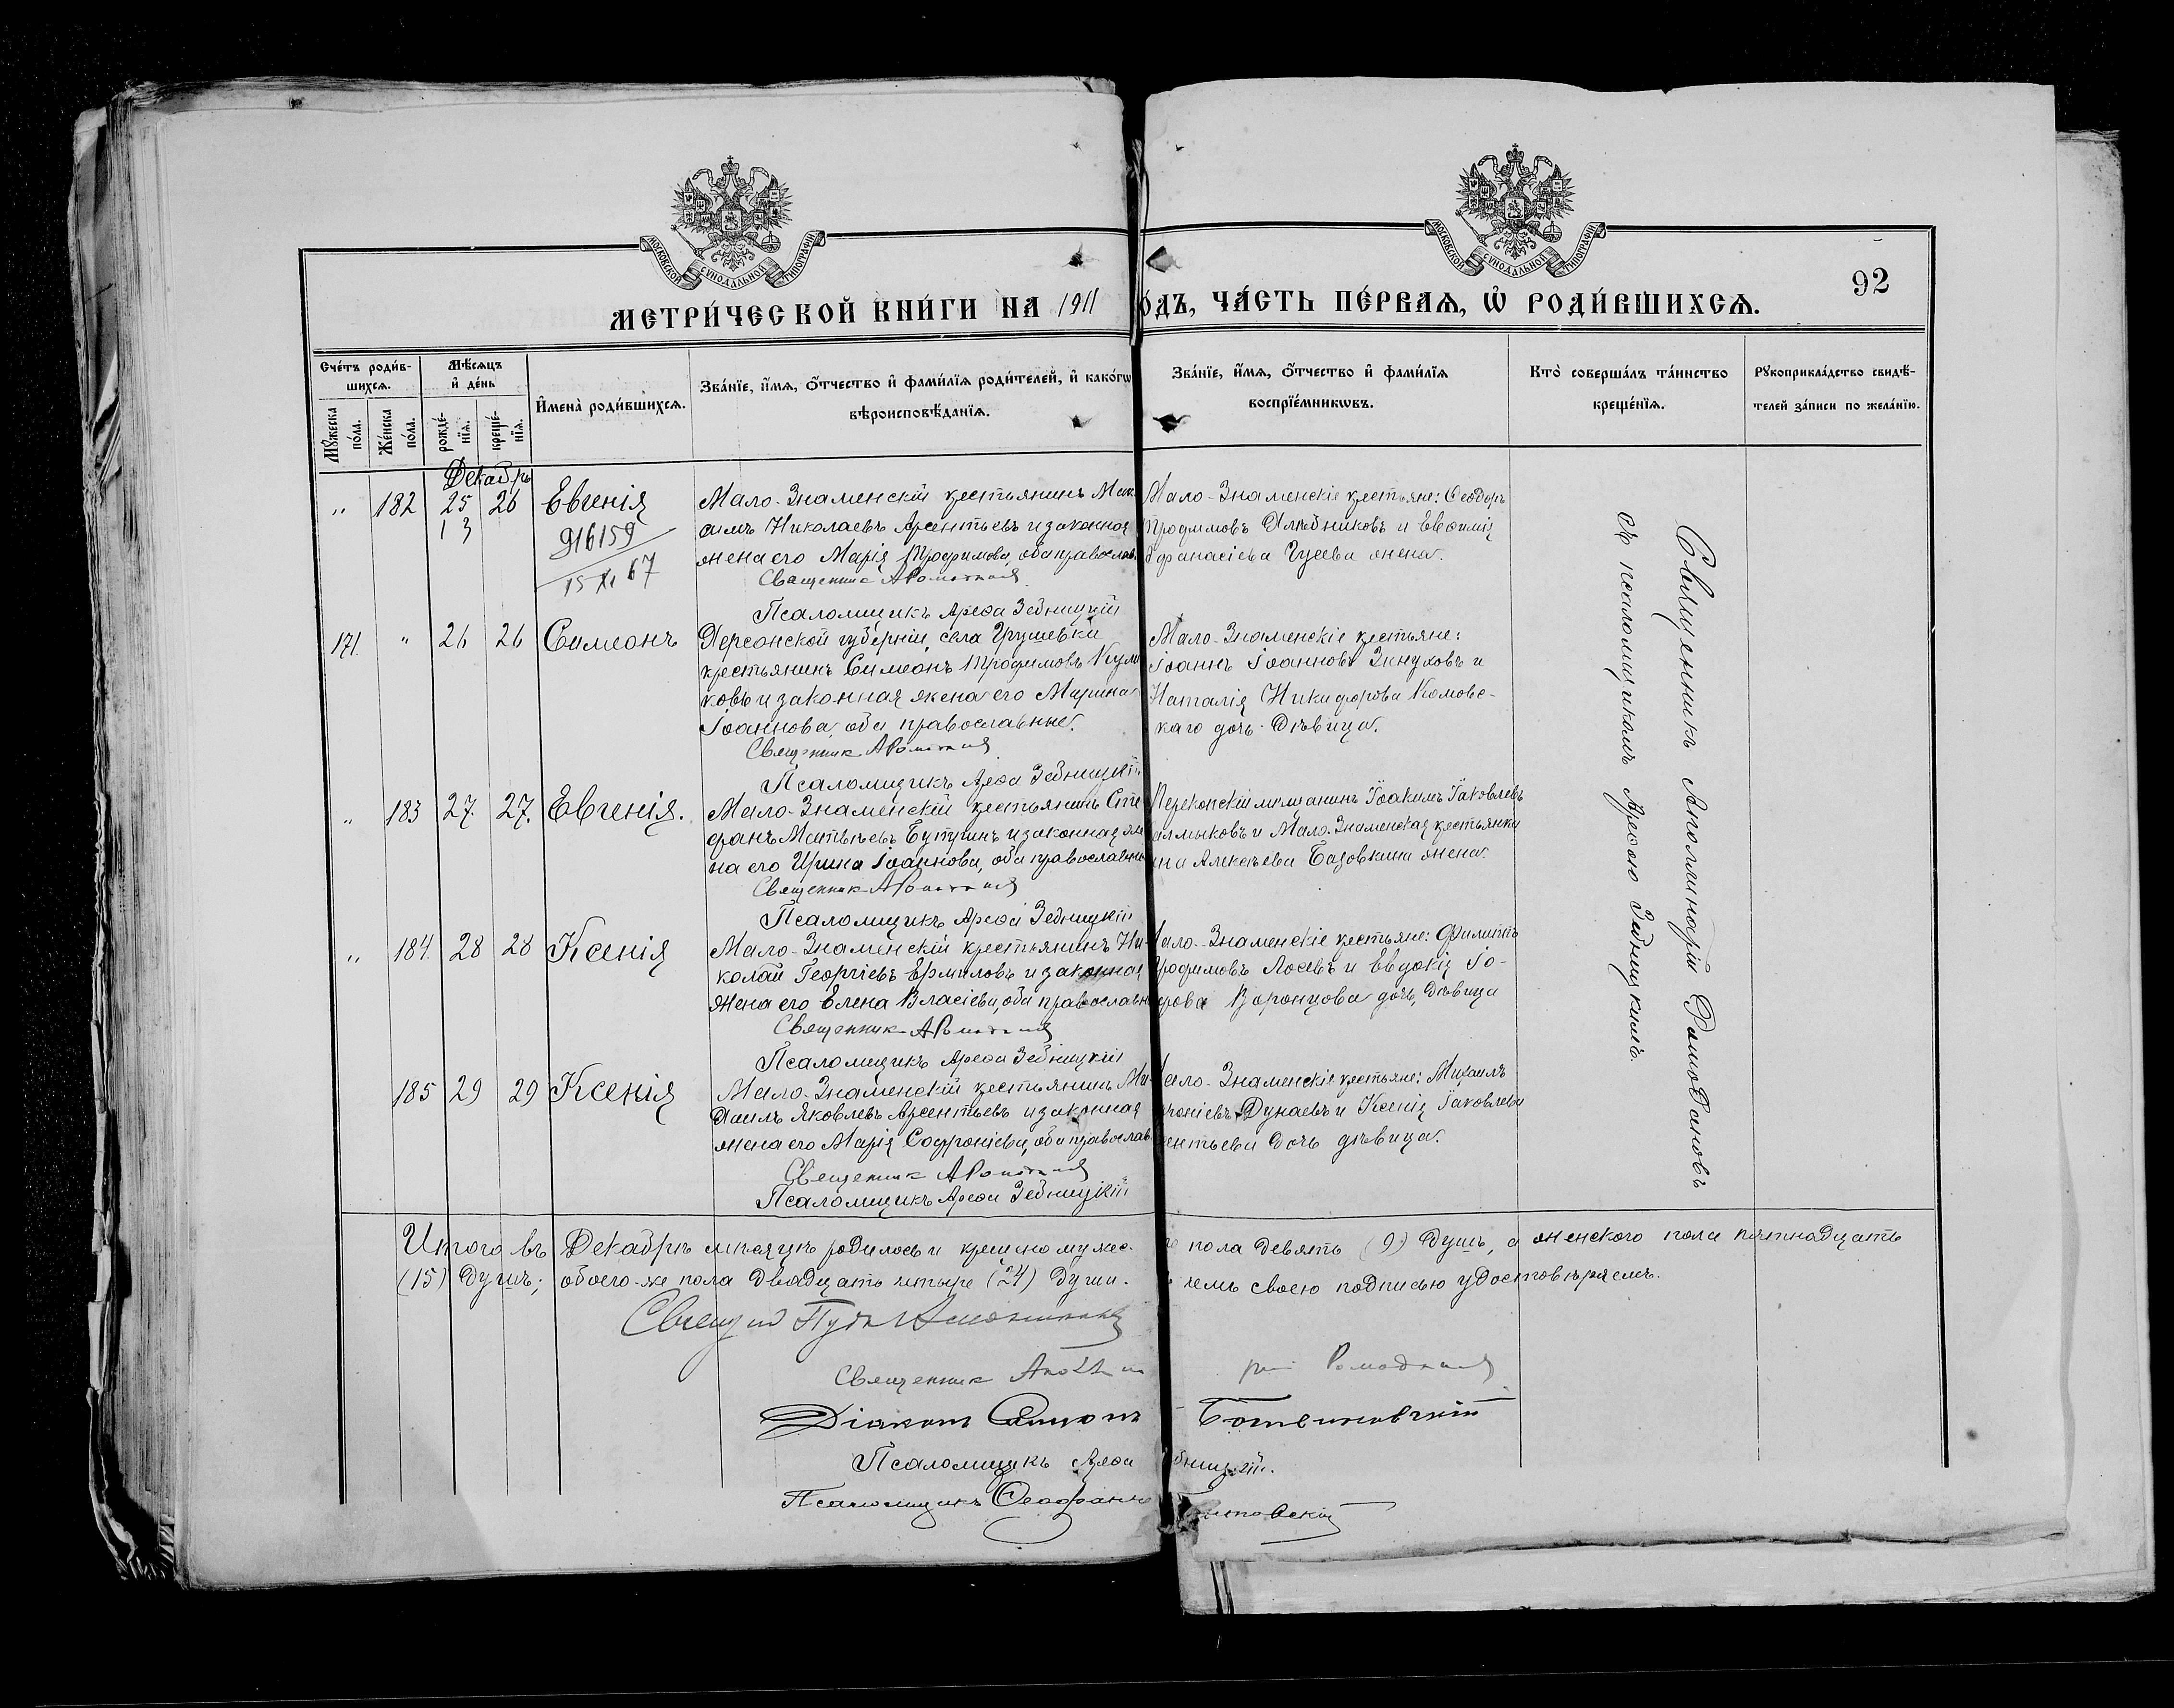 МОСКОВСКОЙ СУНОДАЛЬНОЙ ТИПОГРАФІИ
МОСКОВСКОЙ СУНОДАЛЬНОЙ ТИПОГРАФІИ
92
МЕТРИ́ЧЕСКОЙ КНИ́ГИ НА 1911 ОДЪ, ЧА́СТЬ ПЕ́РВАѦ, Ѡ РОДИ́ВШИХСѦ.
Сче́тъ роди́в-
шихсѧ.
Мѣ́сѧцъ
и҆ де́нь
Мꙋ́жеска по́ла.
Же́нска по́ла.
рожде́-
нїѧ.
креще́-
нїѧ.
И҆мена̀ роди́вшихсѧ.
Зва́нїе, и҆́мѧ, ѻ҆́тчество и҆ фами́лїѧ роди́телей, и҆ како́гѡ
вѣроисповѣ́данїѧ.
Зва́нїе, и҆́мѧ, ѻ҆́тчество и҆ фами́лїѧ
воспрїе́мникѡвъ.
Кто̀ соверша́лъ та́инство
креще́нїѧ.
Рꙋкоприкла́дство свидѣ́-
телей за́писи по жела́нїю.
Декабрь
" 182 25 26 Евгенія
13
916159
15 XI 67
Мало-Знаменскій крестьянинъ Мак
симъ Николаевъ Арсентьевъ и законная
жена его Марія Трофимова, оба православ.
Священникъ
Псаломщикъ Ареѳа Зебницкій
Мало-Знаменскіе крестьяне: Ѳеодоръ
Трофимовъ и Евѳимія
Афанасіева Гусева жена.
171. " 26 26 Симеонъ
Херсонской губерніи, села Грушевки
крестьянинъ Симеонъ Трофимовъ Кули
ковъ и законная жена его Марина
Іоаннова, оба православные.
Священникъ
Псаломщикъ Ареѳа Зебницкій
Мало-Знаменскіе крестьяне:
Іоаннъ Іоанновъ и
Наталія Никифорова Комовс-
каго дочь-дѣвица.
" 183 27. 27. Евгенія.
Мало-Знаменскій крестьянинъ Сте
фанъ Матѳѣевъ и законная же
на его Ирина Іоаннова, оба православны
Священникъ
Псаломщикъ Ареѳа Зебницкій
Перекопскій мѣщанинъ Іоакимъ Іаковлевъ
алмыковъ и Мало-Знаменская крестьянка
на Алексѣева жена.
" 184. 28 28 Ксенія
Мало-Знаменскій крестьянинъ Ни-
колай Георгіевъ Ермиловъ и законная
жена его Елена Власіева, оба православн
Священникъ
Псаломщикъ Ареѳа Зебницкій
ало-Знаменскіе крестьяне: Филиппъ
Трофимовъ Лосевъ и Евдокія
Воронцова дочь, дѣвица
185 29 29 Ксенія
Мало-Знаменскій крестьянинъ Ми-
хаилъ Яковлевъ Арсентьевъ и законная
жена его Марія Софроніева, оба православ
Священникъ
Псаломщикъ Ареѳа Зебницкій
ало-Знаменскіе крестьяне: Михаилъ
роніевъ Дунаевъ и Ксенія Іаковлева
ентьева дочь дѣвица.
Священникъ Аполлинарій Ромодановъ
съ псаломщикомъ Ареѳою Зебницкимъ.
Итого въ Декабрѣ мѣсяцѣ родилось и крещено мужес- пола девять (9) душъ, а женского пола пятнадцать
(15) душъ; обоего-же пола двадцать четыре (24) души. чемъ своею подписью удостовѣряемъ.
Священникъ
Діаконъ
Псаломщикъ Ареѳа бницкій.
Псаломщикъ Ѳеофанъ